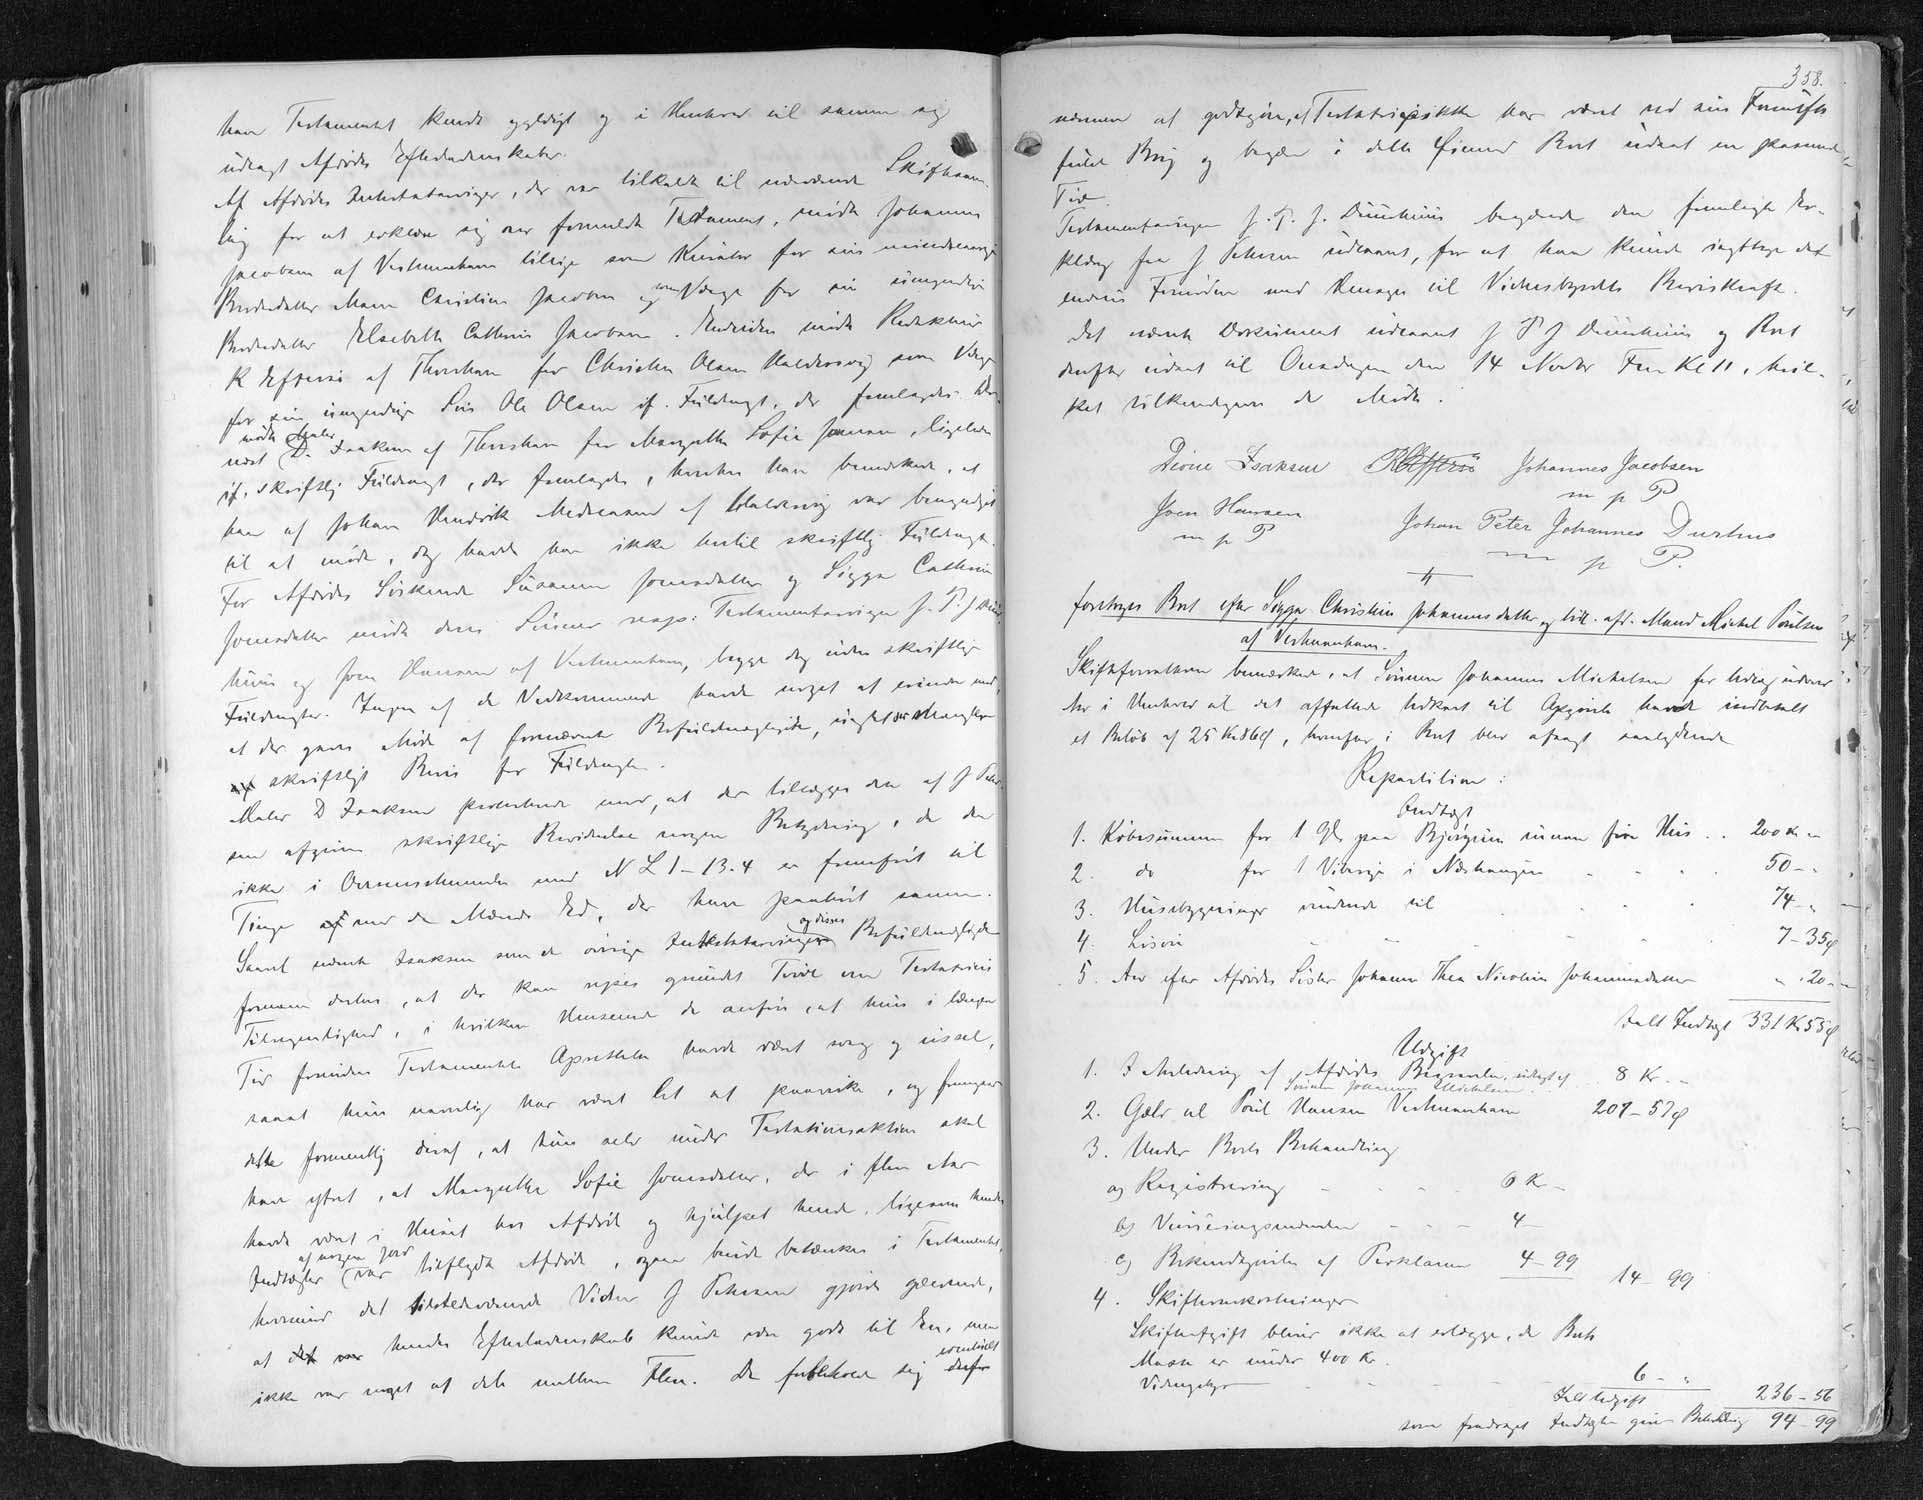 have Testamentet kendt gyldigt og i Henhold til samme sig
udlagt Afdødes Efterladenskaber.
Af Afdødes Intestatarvinger, der var tilkaldt til nærværende Skiftesam-
ling for at erklære sig over formeldte Testament, mødte Johannes
Jacobsen af Vestmanhavn tillige som Kurator for sin mindreaarige
Broderdatter Maren Christine Jacobsen og som Værge for sin umyndige
Broderdatter Elsebeth Cathrine Jacobsen. Endvidere mødte Redaktør
R Effersø af Thorshavn for Christen Olsen Haldersvig som Værge
for sin umyndige Søn Ole Olsen if. Fuldmagt, der fremlagdes. Der-
næst mødte Maler D. Isaksen af Thorshavn for Margrethe Sofie Joensen, ligeledes
if. skriftlig Fuldmagt, der fremlagdes, hvorhos han bemærkede, at
han af Johan Hendrik af Haldersvig var bemyndiget
til at møde, dog havde han ikke hertil skriftlig Fuldmagt.
For Afdødes Søskende Susanne Joensdatter og Sigga Cathrine
Joensdatter mødte deres Sønner resp: Testamentarvingen J. P. J Duur-
huus og Joen Hansen af Vestmanhavn, begge dog uden skriftlige
Fuldmagter. Ingen af de Vedkommende havde noget at erindre mod,
at der gaves Møde af fornævnte Befuldmægtigede, uagtet der manglede
skriftligt Bevis for Fuldmagten.
Maler D Isaksen protesterede mod, at der tillægges den af J Peter-
sen afgivne skriftlige Bevidnelse nogen Betydning, da den
ikke i Overensstemmelse med N L 1-13-4 er fremført til
Tinge med de Mænds Ed, der have paahørt samme.
Saavel nævnte Isaksen som de øvrige Intestatarvinger og disses Befuldmægtigede
formene derhos, at der kan rejses grundet Tvivl om Testatricis
Tilregnelighed, i hvilken Henseende de anføre, at hun i længere
Tid forinden Testamentets Oprettelse havde været svag og ussel,
saaat hun navnlig har været let at paavirke, og fremgaar
dette formentlig deraf, at hun selv under Testationsakten skal
have ytret, at Margrethe Sofie Joensdatter, der i flere Aar
havde været i Huset hos Afdøde og hjulpet hende, ligesom hendes
Indtægter af nogen Jord var tilflydt Afdøde, ogsaa burde betænkes i Testamentet,
hvorimod det tilstedeværende Vidne J Petersen gjorde gældende,
at hendes Efterladenskab kunde være godt til Een, men
ikke var noget at dele mellem Flere. De forbeholde sig eventuelt
358.
nærmere at godtgøre, at Testatrix ikke har været ved sin Fornufts
fulde Brug og begære i dette Øiemed Boet udsat en passende
Tid.
Testamentarvingen J. P. J. Duurhuus begærede den fremlagte Er-
klæring fra J Petersen udleveret, for at han kunde iagttage det
endnu Fornødne med Hensyn til Vidnesbyrdets Beviskraft.
Det nævnte Dokument udleveret J P J Duurhuus og Boet
derefter udsat til Onsdagen den 14 Novbr Frm Kl 11, hvil-
ket tilkendegaves de Mødte.
Dione Isaksen R Effersø Johannes Jacobsen
m p P
Joen Hansen Johan Peter Johannes Durhus
m p P m p P.
foretoges Boet efter Sigga Christine Johannesdatter og tidl. afd. Mand Michel Poulsen
af Vestmanhavn.
Skifteforvalteren bemærkede, at Sønnen Johannes Michelsen for hvad
her i Henhold til det affattede Udkast til Opgørelse havde indbetalt
et Beløb af 25 Kr 86 Ø, hvorefter i Boet blev afsagt saalydende
Repartition:
Indtægt
1. Købesummen for 1 Gl. paa Bjørgum uden fire Hus .. 200 Kr "
2. do for 1 i Næshaugen - - - 50 - "
3. Husebygninger vurderede til - - - 74 - "
4. Løsøre - - - 7 - 35 Ø
5. Arv efter Afdødes Søster Johanne Thea Nicoline Johannesdatter " 20 -
Ialt Indtægt 331 Kr 55 Ø
Udgift
1. I Anledning af Afdødes Begravelse, udlagt af
Sønnen Johannes Michelsen .. 8 Kr. -
2. Gæld til Poul Hansen Vestmanhavn 207 - 57 Ø
3. Under Boets Behandling
a) Registrering - - - 6 Kr -
b) Vurderingsmænden - - - 4 -
c) Bekendtgørelse af Proklama 4 - 99
14 - 99
4. Skifteomkostninger
Skifteafgift bliver ikke at erlægge, da Boets
Masse er under 400 Kr.
- - - 6 - "
Ialt Udgift 236 - 56
som fradraget Indtægten giver Beholdning 94 - 99